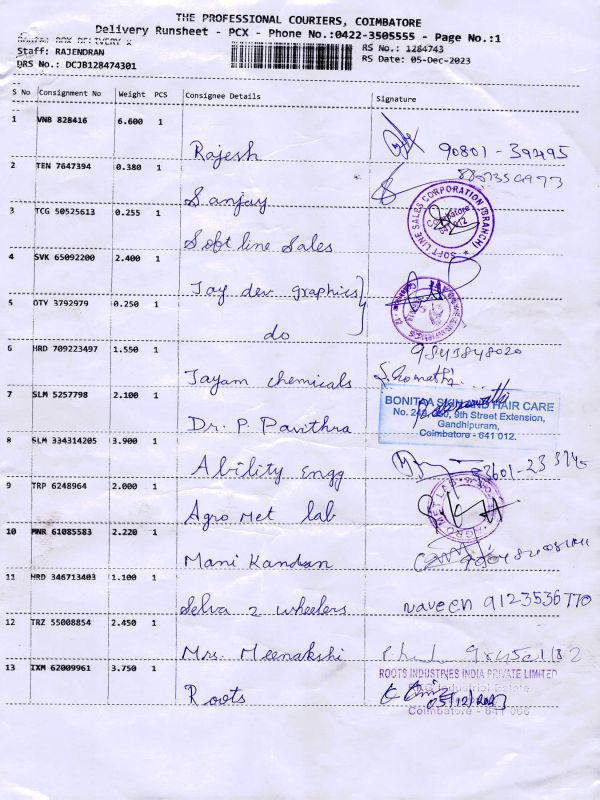 THE PROFESSIONAL COURIERS, COIMBATORE
Delivery Runsheet - PCX - Phone No.:0422-3505555 - Page No.:1
Staff: RAJENDRAN
RS No.: 1284743
DRS No.: DCJB128474301
RS Date: 05-Dec-2023
S No Consignment No Weight PCS Consignee Details Signature
1 VNB 828416 6.600 1
Rajesh 90801-39495
2 TEN 7647394 0.380 1
Sanjay
3 TCG 50525613 0.255 1
Soft line Sales
SOFT LINE SALES CORPORATION (BRANCH)
Coimbatore
4 SVK 65092200 2.400 1
Jay dev graphics
5 OTY 3792979 0.250 1
do
6 HRD 709223497 1.550 1
9843848020
Jayam chemicals
7 SLM 5257798 2.100 1
BONITAA SKIN AND HAIR CARE
9th Street Extension,
Gandhipuram,
Coimbatore - 641 012.
Dr. P. Pavithra
8 SLM 334314205 3.900 1
Ability engg
9 TRP 6248964 2.000 1
Agro Met lab
10 MNR 61085583 2.220 1
Mani Kandan
11 HRD 346713403 1.100 1
Selva 2 wheelers naveen 9123536770
12 TRZ 55008854 2.450 1
Mrs. Meenakshi
13 IXM 62009961 3.750 1
ROOTS INDUSTRIES INDIA PRIVATE LIMITED
Industrial Estate
Roots 05/12/2023
Coimbatore - 641 006